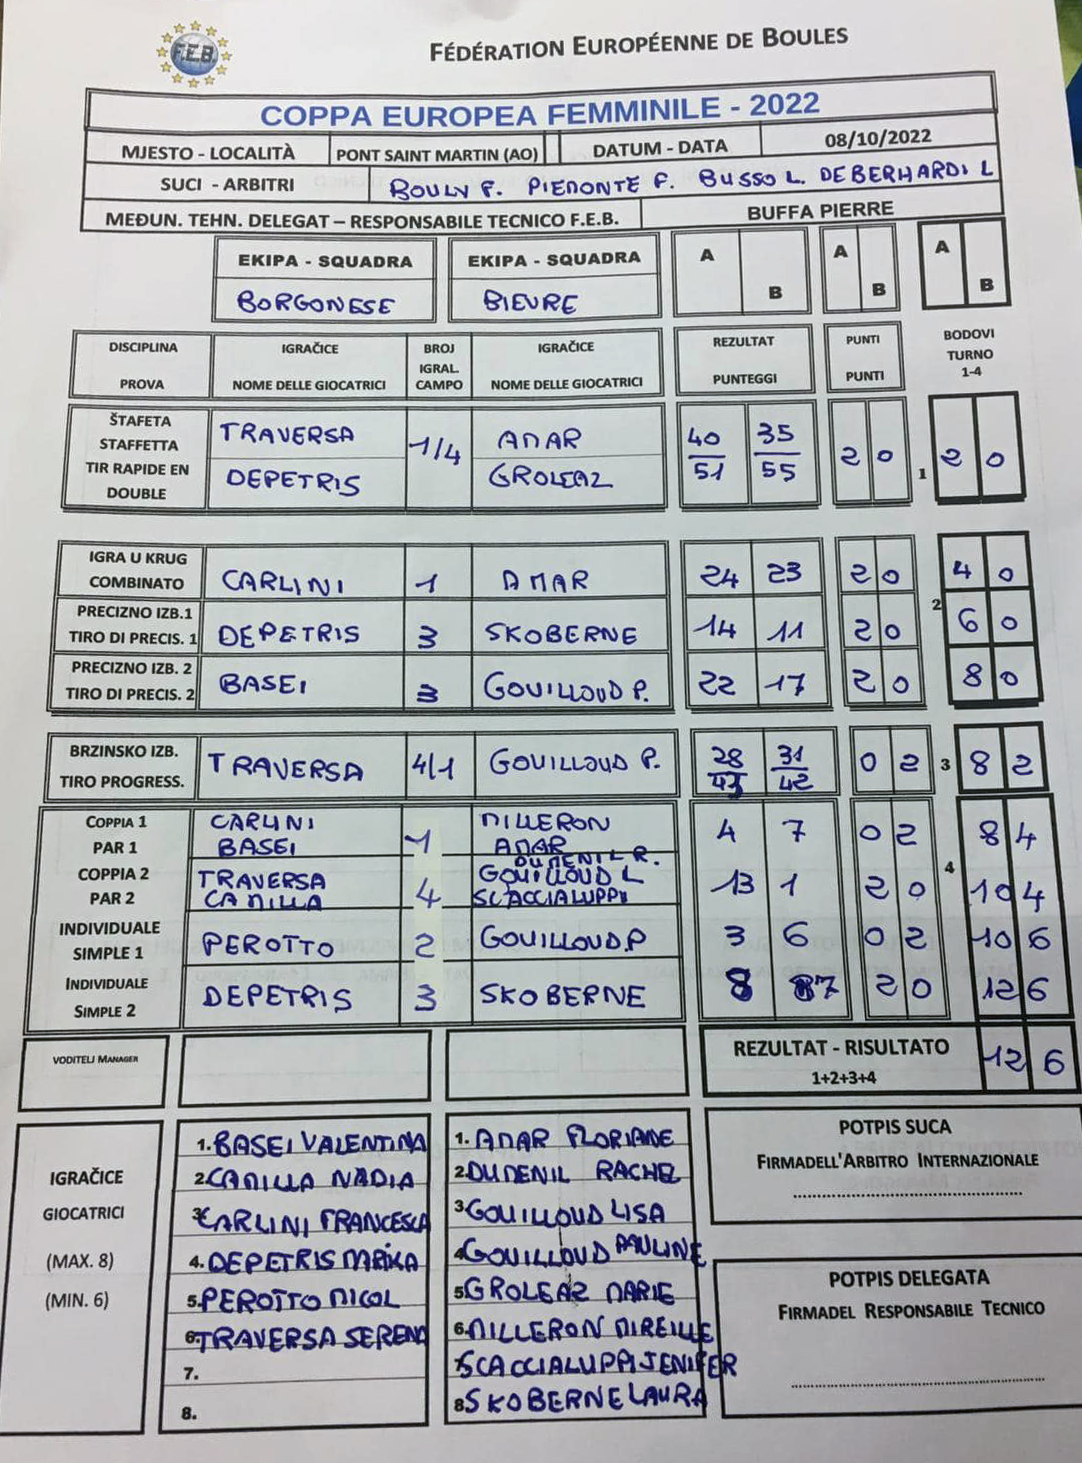 F.E.B.
FÉDÉRATION EUROPÉENNE DE BOULES
COPPA EUROPEA FEMMINILE - 2022
MJESTO - LOCALITÀ PONT SAINT MARTIN (AO) DATUM - DATA 08/10/2022
SUCI - ARBITRI BOULY P. PIEMONTE F. BUSSO L. DEBERHARDI L
MEĐUN. TEHN. DELEGAT – RESPONSABILE TECNICO F.E.B. BUFFA PIERRE
EKIPA - SQUADRA EKIPA - SQUADRA A B A B A B
BORGONESE BIEVRE
DISCIPLINA IGRAČICE BROJ IGRAČICE REZULTAT PUNTI BODOVI
IGRAL. TURNO
PROVA NOME DELLE GIOCATRICI CAMPO NOME DELLE GIOCATRICI PUNTEGGI PUNTI 1-4
ŠTAFETA TRAVERSA AMAR 40 35
STAFFETTA 1/4 2 0 1 2 0
TIR RAPIDE EN DEPETRIS GROLEAZ 51 55
DOUBLE
IGRA U KRUG
COMBINATO CARLINI 1 AMAR 24 23 2 0 4 0
PRECIZNO IZB.1 2
TIRO DI PRECIS. 1 DEPETRIS 3 SKOBERNE 14 11 2 0 6 0
PRECIZNO IZB. 2
TIRO DI PRECIS. 2 BASEI 3 GOUILLOUD P. 22 17 2 0 8 0
BRZINSKO IZB. TRAVERSA 4/1 GOUILLOUD P. 28 31 0 2 3 8 2
TIRO PROGRESS. 43 42
COPPIA 1 CARLINI MILLERON
PAR 1 BASEI 1 AMAR 4 7 0 2 8 4
DUMENIL R.
COPPIA 2 TRAVERSA GOUILLOUD L 4
PAR 2 CAMILLA 4 SCACCIALUPPI 13 1 2 0 10 4
INDIVIDUALE
SIMPLE 1 PEROTTO 2 GOUILLOUD.P 3 6 0 2 10 6
INDIVIDUALE
SIMPLE 2 DEPETRIS 3 SKOBERNE 8 7 2 0 12 6
VODITELJ MANAGER REZULTAT - RISULTATO 12 6
1+2+3+4
IGRAČICE
GIOCATRICI
(MAX. 8)
(MIN. 6)
1. BASEI VALENTINA
2. CAMILLA NADIA
3. CARLINI FRANCESCA
4. DEPETRIS MARIKA
5. PEROTTO NICOL
6. TRAVERSA SERENA
7.
8.
1. AMAR FLORIANE
2. DUMENIL RACHEL
3 GOUILLOUD LISA
4 GOUILLOUD PAULINE
5 GROLEAZ MARIE
6. MILLERON MIREILLE
7 SCACCIALUPPI JENIFER
8 SKOBERNE LAURA
POTPIS SUCA
FIRMADELL'ARBITRO INTERNAZIONALE
POTPIS DELEGATA
FIRMADEL RESPONSABILE TECNICO